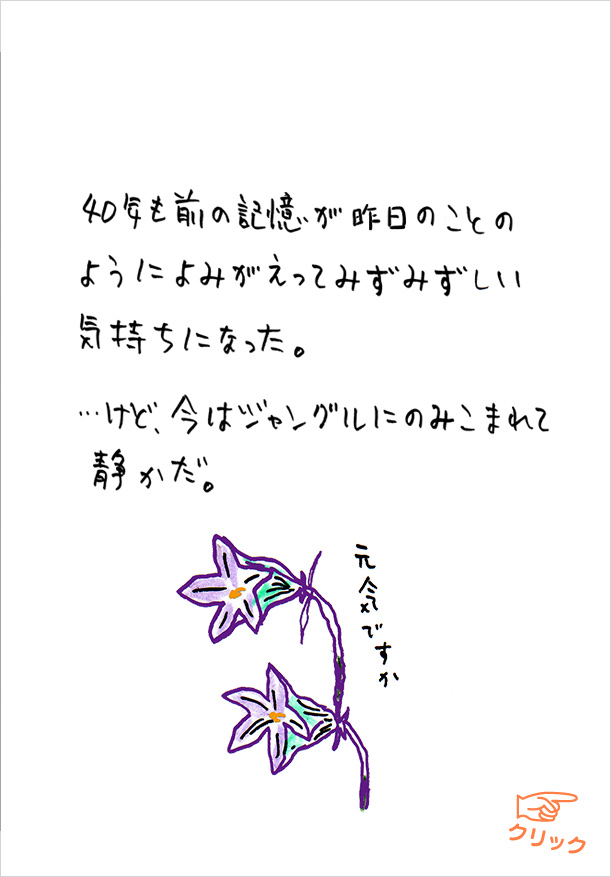 40年も前の記憶が昨日のことの
ようによみがえってみずみずしい
気持ちになった。
…けど、今はジャングルにのみこまれて
静かだ。
元気ですか
クリック